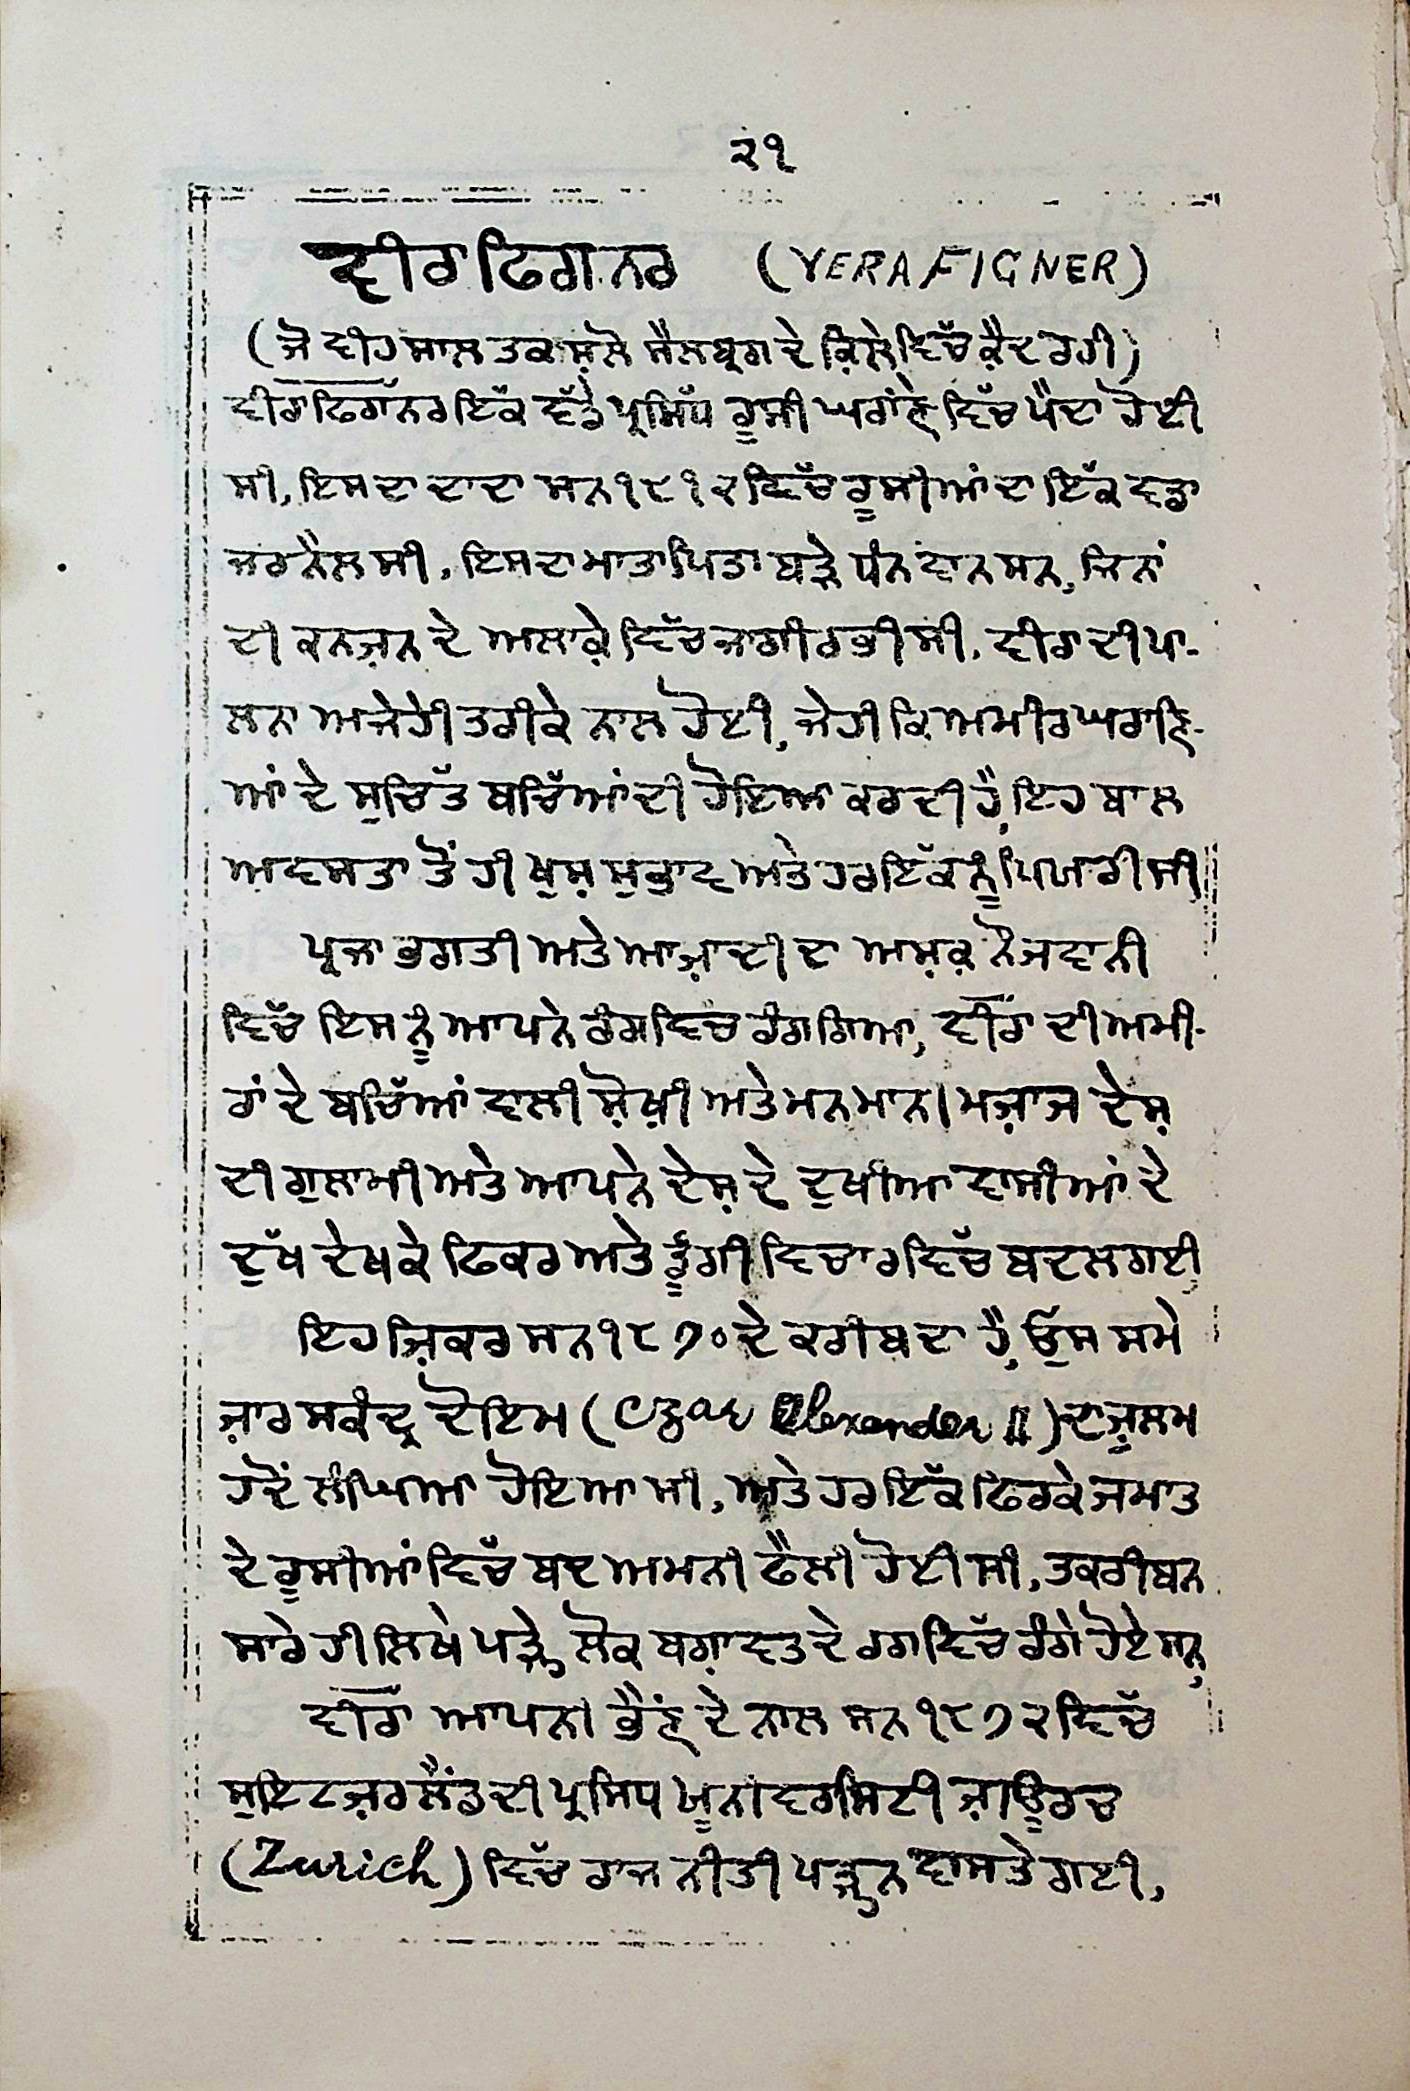 ੨੧
ਵੀਰਾ ਫਿਗਨਰ (VERA FIGNER)
(ਜੋ ਵੀਹ ਸਾਲ ਤਕ ਸ਼ਲੋ ਸੈਲਬ੍ਰਗ ਦੇ ਕ਼ਿਲੇ ਵਿੱਚ ਕ਼ੈਦ ਰਹੀ)
ਵੀਰਾ ਫਿਗਨਰ ਇੱਕ ਵੱਡੇ ਪ੍ਰਸਿੱਧ ਰੂਸੀ ਘਰਾਂਣੇ ਵਿੱਚ ਪੈਦਾ ਹੋਈ
ਸੀ, ਇਸ ਦਾ ਦਾਦਾ ਸਨ ੧੮੧੨ ਵਿੱਚ ਰੂਸੀਆਂ ਦਾ ਇੱਕ ਵਡਾ
ਜਰਨੈਲ ਸੀ, ਇਸਦਾ ਮਾਤਾ ਪਿਤਾ ਬੜੇ ਧੰਨਵਾਨ ਸਨ, ਜਿਨਾਂ
ਦੀ ਕਨਜ਼ਨ ਦੇ ਅਲਾਕ਼ੇ ਵਿੱਚ ਜਾਗੀਰ ਭੀ ਸੀ, ਵੀਰਾ ਦੀ ਪਾ-
ਲਨਾ ਅਜੇਹੇ ਤਰੀਕੇ ਨਾਲ ਹੋਈ, ਜੇਹੀ ਕਿ ਅਮੀਰ ਘਰਾਣਿ-
ਆਂ ਦੇ ਸੁਚਿੱਤ ਬਚਿੱਆਂ ਦੀ ਹੋਇਆ ਕਰਦੀ ਹੈ, ਇਹ ਬਾਲ
ਅਵਸਤਾ ਤੋਂ ਹੀ ਖੁਸ਼ ਸੁਭਾਵ ਅਤੇ ਹਰਇੱਕ ਨੂੰ ਪਿਯਾਰੀ ਸੀ,
ਪ੍ਰਜਾ ਭਗਤੀ ਅਤੇ ਆਜ਼ਾਦੀ ਦਾ ਅਸ਼ਕ਼ ਨੌਜਵਾਨੀ
ਵਿੱਚ ਇਸ ਨੂੰ ਆਪਨੇ ਰੰਗ ਵਿਚ ਰੰਗ ਗਿਆ, ਵੀਰਾ ਦੀ ਅਮੀ-
ਰਾਂ ਦੇ ਬਚਿੱਆਂ ਵਾਲੀ ਸ਼ੋਖ਼ੀ ਅਤੇ ਮਨਮਾਨਾ ਮਜ਼ਾਜ ਦੇਸ਼
ਦੀ ਗੁਲਾਮੀ ਅਤੇ ਆਪਨੇ ਦੇਸ਼ ਦੇ ਦੁਖੀਆ ਵਾਸੀਆਂ ਦੇ
ਦੁੱਖ ਦੇਖ ਕੇ ਫਿਕਰ ਅਤੇ ਡੂੰਗੀ ਵਿਚਾਰ ਵਿੱਚ ਬਦਲ ਗਈ,
ਇਹ ਜ਼ਿਕਰ ਸਨ ੧੮੭੦ ਦੇ ਕਰੀਬ ਦਾ ਹੈ, ਓੁਸ ਸਮੇ
ਜ਼ਾਰ ਸਕੰਦ੍ਰ ਦੋਇਮ (Czar Alexander II) ਦਾ ਜ਼ੁਲਮ
ਹਦੋਂ ਲੰੀਘਿਆ ਹੋਇਆ ਸੀ, ਅਤੇ ਹਰਇੱਕ ਫਿਰਕੇ ਜਮਾਤ
ਦੇ ਰੂਸੀਆਂ ਵਿੱਚ ਬਦਅਮਨੀ ਫੈਲੀ ਹੋਈ ਸੀ, ਤਕਰੀਬਨ
ਸਾਰੇ ਹੀ ਲਿਖੇ ਪੜ੍ਹੇ ਲੋਕ ਬਗ਼ਾਵਤ ਦੇ ਰਗ ਵਿੱਚ ਰੰਗੇ ਹੋਏ ਸਨ,
ਵੀਰਾ ਆਪਨੀ ਭੈਂਣ ਦੇ ਨਾਲ ਸਨ ੧੮੭੨ ਵਿੱਚ
ਸੁਇਟਜ਼ਰਲੈਂਡ ਦੀ ਪ੍ਰਸਿਧ ਯੂਨੀਵਰਸਿਟੀ ਜ਼ਊਰਚ
(Zurich) ਵਿੱਚ ਰਾਜਨੀਤੀ ਪੜ੍ਹਨ ਵਾਸਤੇ ਗਈ,